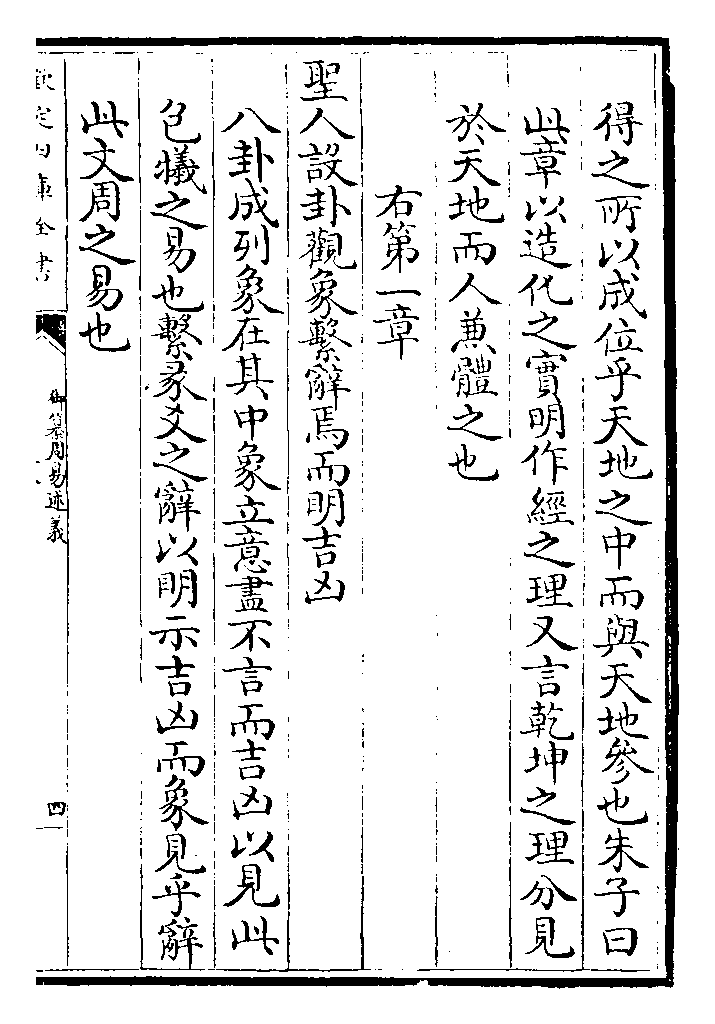 得之所以成位乎天地之中而與天地參也朱子曰
此章以造化之實明作經之理又言乾坤之理分見
於天地而人兼體之也
右第一章
聖人設卦觀象繫辭焉而明吉凶
八卦成列象在其中象立意盡不言而吉凶以見此
包犧之易也繫彖爻之辭以明示吉凶而象見乎辭
此文周之易也
欽定四庫全書
御纂周易述義
四